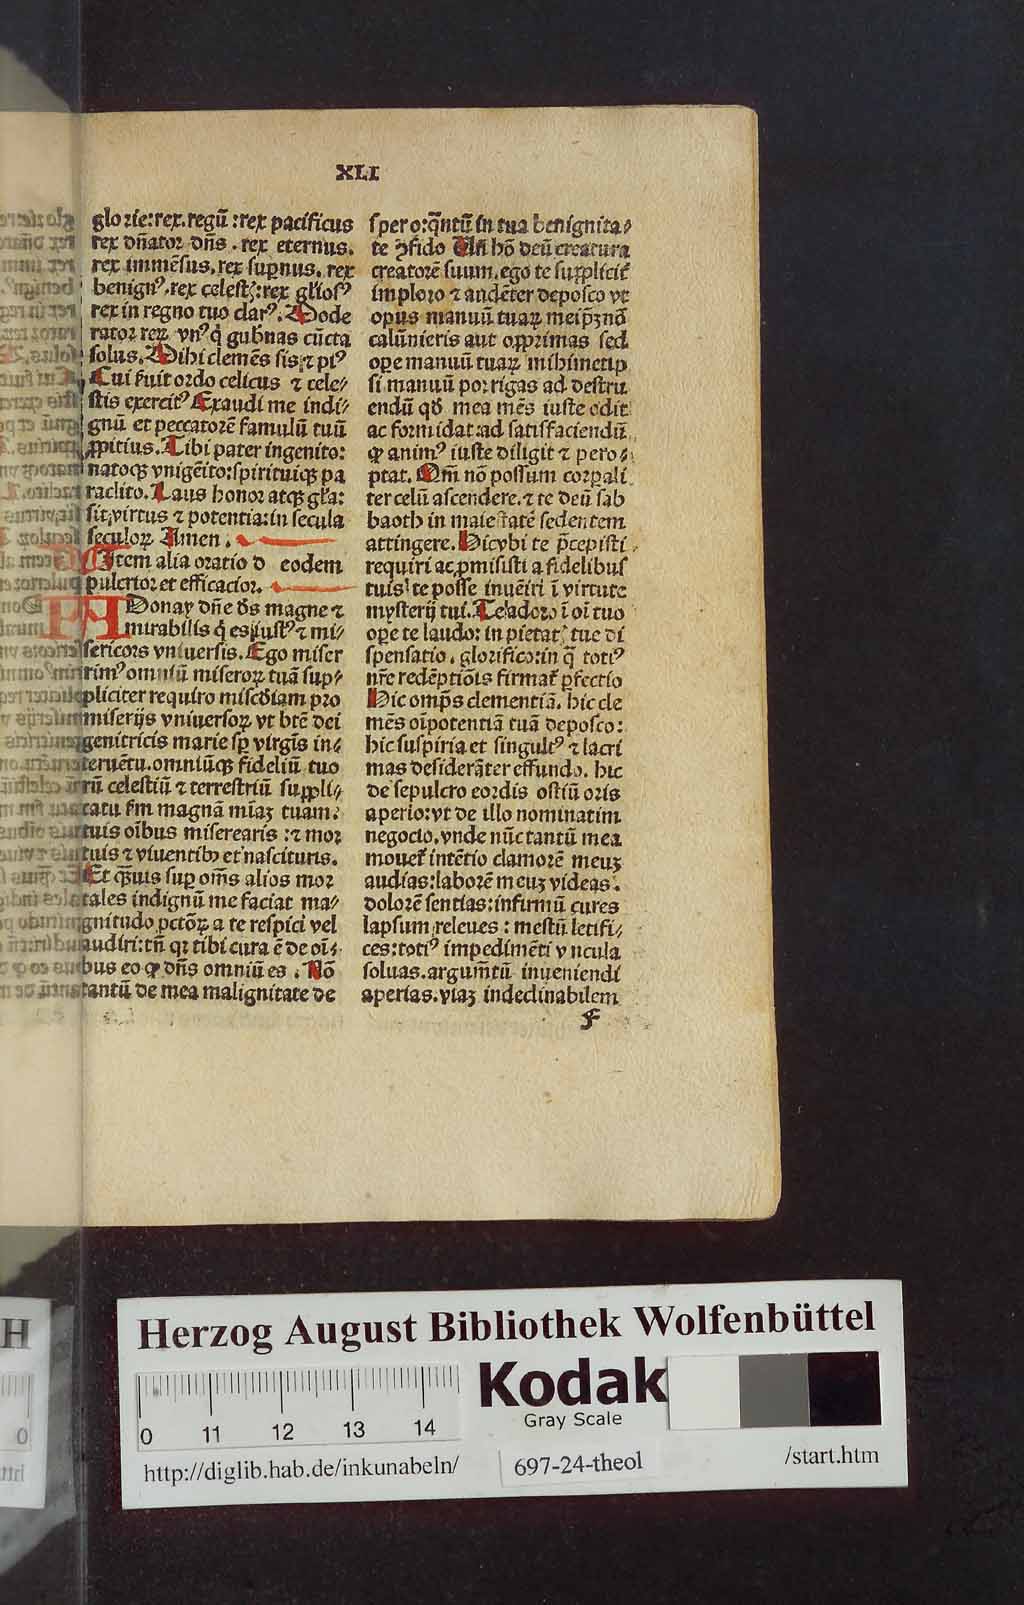 XLI
glorie:rex.regū:rex pacificus
rex dn̄ator dn̄s.rex eternus.
rex immēsus.rex sup̲nus.rex
benignꝰ.rex celestꝭ:rex gl̄iosꝰ
rex in regno tuo clarꝰ.Mode
rator reꝝ vnꝰ q̇ gub̄nas cūcta
solus.Mihi clemēs sis ⁊ piꝰ
Cui fuit ordo celicus ⁊ cele⸗
stis exercitꝰ Exaudi me indi⸗
gnū et peccatorē famulū tuū
ꝓpitius.Tibi pater ingenito:
natoqꝫ vnigēito:spirituiqꝫ pa
raclito.Laus honor atqꝫ gl̄a:
sit virtus ⁊ potentia:in secula
seculoꝝ Amen.
Item alia oratio d eodem
pulcrior et efficacior.
ADonay dn̄e d̄s magne ⁊
mirabilis q̇ es iustꝰ ⁊ mi⸗
sericors vniuersis.Ego miser
rimꝰ omniū miseroꝝ tuā sup⸗
pliciter requiro misc̄diam pro
miserijs vniuersoꝝ vt btē dei
genitricis marie sp̲ virgīs in⸗
teruētu.omniūqꝫ fideliū tuo
rū celestiū ⁊ terrestriū suppli⸗
catu fm magnā mīaꝫ tuam:
tuis oībus miserearis:⁊ mor
tuis ⁊ viuentibꝫ et nascituris.
Et qꝫuis sup̲ om̄s alios mor
tales indignū me faciat ma⸗
gnitudo pctōꝝ a te respici vel
audiri:tn̄ qꝛ tibi cura ē de oī⸗
bus eo ꝙ dn̄s omniū es.Nō
tantū de mea malignitate de
spero:q̄ntū in tua benignita⸗
te ꝯfido Un̄ hō deū creatura
creatorē suum.ego te supplicit̓
imploro ⁊ audēter deposco vt
opus manuū tuaꝝ meipꝫ nō
calūnieris aut opprimas sed
ope manuū tuaꝝ mihimetip
si manuū porrigas ad destru
endū qd̄ mea mēs iuste odit
ac formidat:ad satisfaciendū
ꝙ animꝰ iuste diligit ⁊ pero⸗
ptat.Qm̄ nō possum corꝑali
ter celū ascendere.⁊ te deū sab
baoth in maiestatē sedentem
attingere.Hic vbi te p̄cepisti
requiri ac ꝓmisisti a fidelibus
tuis te posse inuēiri ī virtute
mysterij tui.Te adoro ī oī tuo
ope te laudo:in pietatꝭ tue di
spensatio.glorifico:in q̄ totiꝰ
nr̄e redēptiōis firmat̓ ꝑfectio
Hic omp̄s clementiā.hic cle
mēs oīpotentiā tuā deposco:
hic suspiria et singultꝰ ⁊ lacri
mas desiderāter effundo.hic
de sepulcro eordis ostiū oris
aperio:vt de illo nominatim
negocio.vnde nūc tantū mea
mouet̓ intētio clamorē meuꝫ
audias:laborē meuꝫ videas.
dolorē sentias:infirmū cures
lapsum releues:mestū letifi⸗
ces:totiꝰ impedimēti vncula
soluas.argum̄tū inueniendi
aperias.viaꝫ indeclinabilem
f
Herzog August Bibliothek Wolfenbüttel
0 11 12 13 14
Kodak
Gray Scale
http://diglib.hab.de/inkunabeln/
697-24-theol
/start.htm